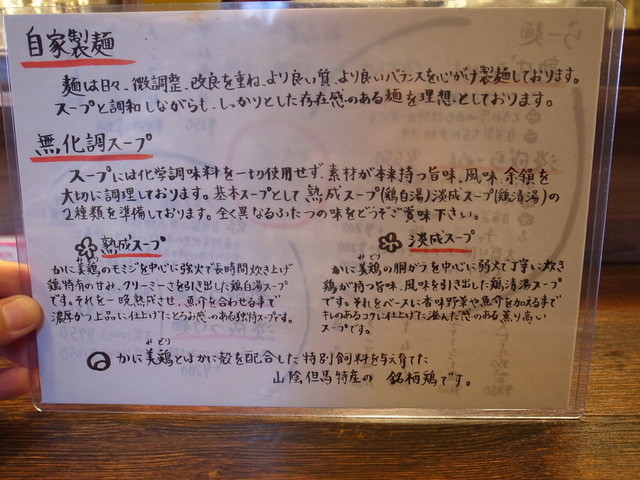 自家製麺
麺は日々、微調整、改良を重ね、より良い質、より良いバランスを心がけ製麺しております。
スープと調和しながらも、しっかりとした存在感のある麺を理想としております。
無化調スープ
スープには化学調味料を一切使用せず、素材が本来持つ旨味、風味、余韻を
大切に調理しております。基本スープとして熟成スープ(鶏白湯)淡成スープ(鶏清湯)の
2種類を準備しております。全く異なるふたつの味をどうぞご賞味下さい。
熟成スープ
かに美鶏のモミジを中心に強火で長時間炊き上げ
みどり
鶏特有の甘み、クリーミーさを引き出した鶏白湯スープ
です。それを一晩熟成させ、魚介を合わせるまで
濃厚かつ上品に仕上げたとろみ感のある独特スープです。
淡成スープ
かに美鶏の胴ガラを中心に弱火で丁寧に炊き
みどり
鶏が持つ旨味、風味を引き出した鶏清湯スープ
です。それをベースに香味野菜や魚介を加えるまで
キレのあるコクに仕上げた澄んだ感のある薫り高い
スープです。
みどり
かに美鶏とはかに殻を配合した特別飼料を与え育てた
山陰但馬特産の 銘柄鶏です。